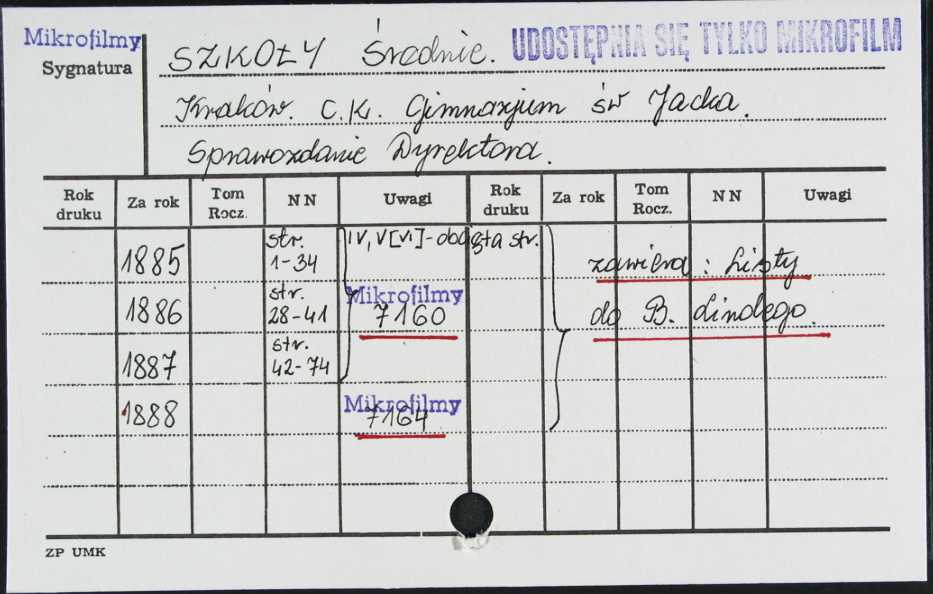 Mikrofilmy
Sygnatura
UDOSTĘPNIA SIĘ TYLKO MIKROFILM
SZKOŁY Średnie.
Kraków. C.K. Gimnazjum św Jacka.
Sprawozdanie Dyrektora.
Rok druku Za rok Tom Rocz. NN Uwagi Rok druku Za rok Tom Rocz. NN Uwagi
1885 str. 1-34 IV, V[VI] - str.
zawiera: Listy
1886 str. 28-41 Mikrofilmy 7160
do B. Lindego.
1887 str. 42-74
1888 Mikrofilmy 7164
ZP UMK